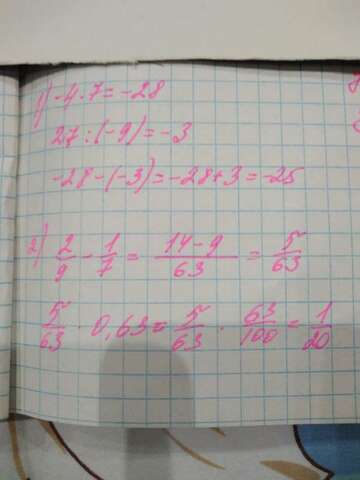 1) -4·7=-28
27:(-9)=-3
-28-(-3)=-28+3=-25
2) 2/9 - 1/7 = (14-9)/63 = 5/63
5/63 · 0,63 = 5/63 · 63/100 = 1/20